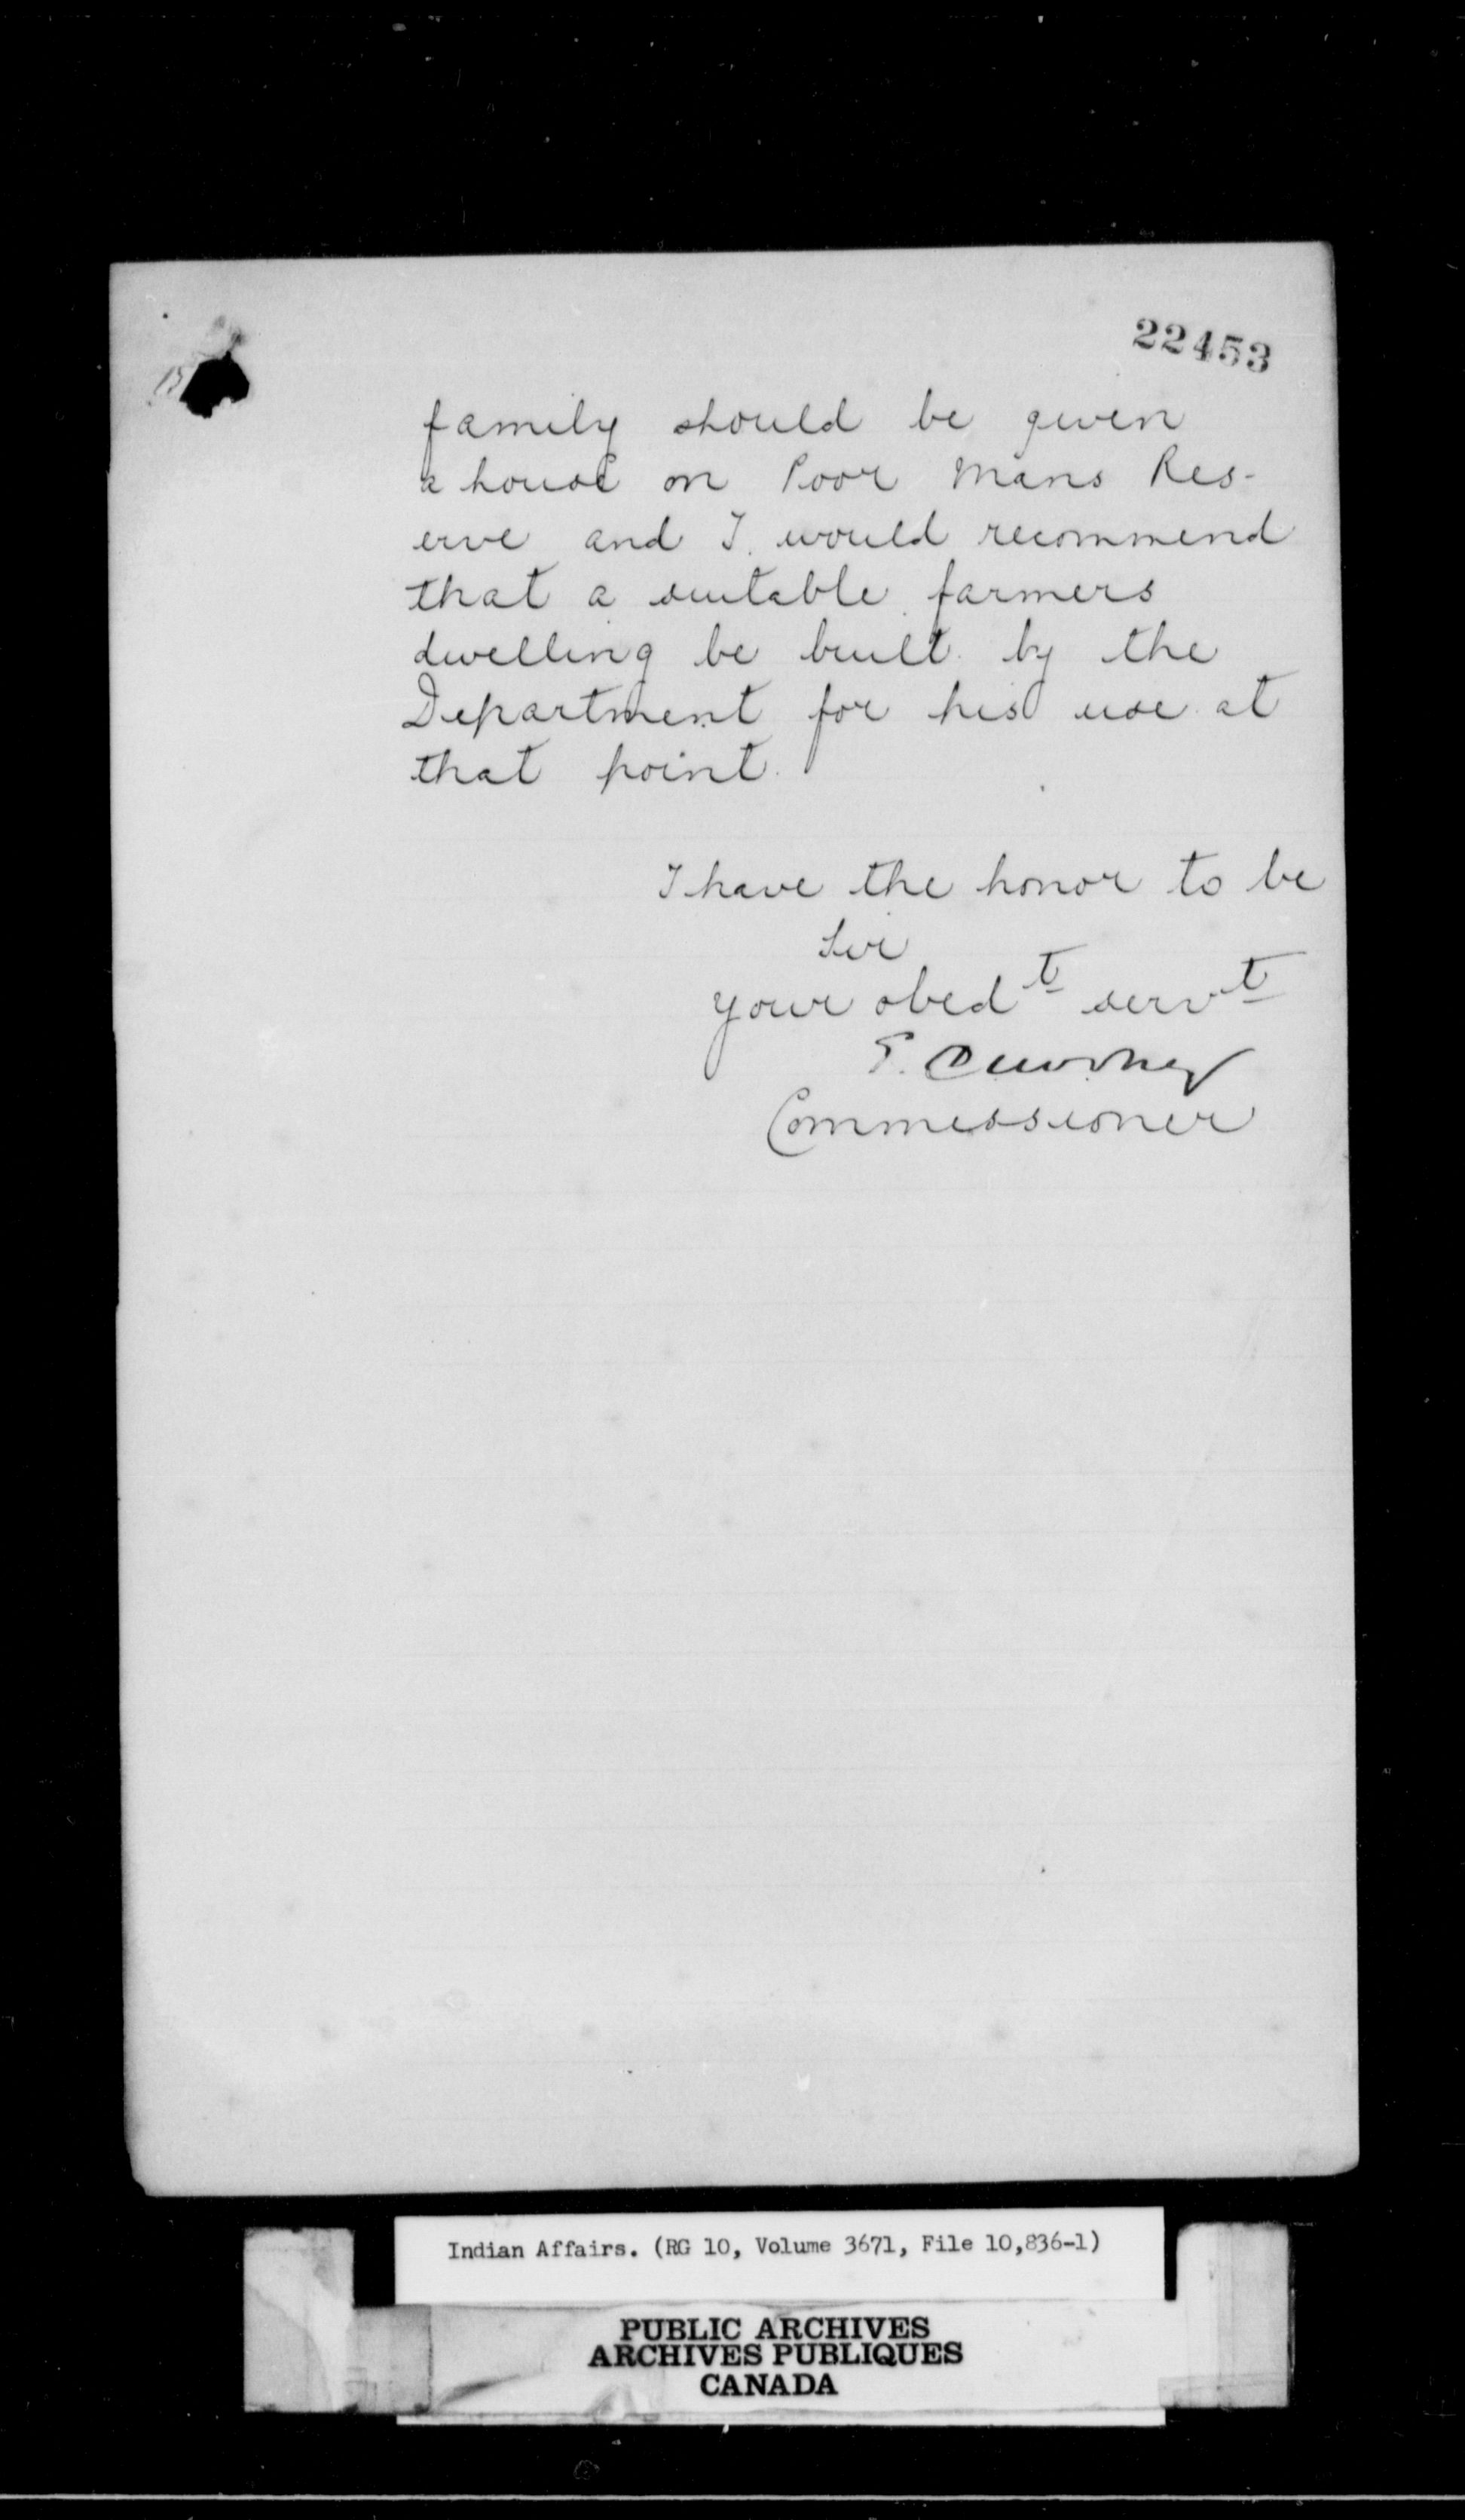 22453
15
family should be given
a house on Poor Mans Res-
erve and I would recommend
that a suitable farmers
dwelling be built by the
Department for his use at
that point.
I have the honor to be
Sir
your obedt servt
E. Dewdney
Commissioner
Indian Affairs. (RG 10, Volume 3671, File 10,836-1)
PUBLIC ARCHIVES
ARCHIVES PUBLIQUES
CANADA